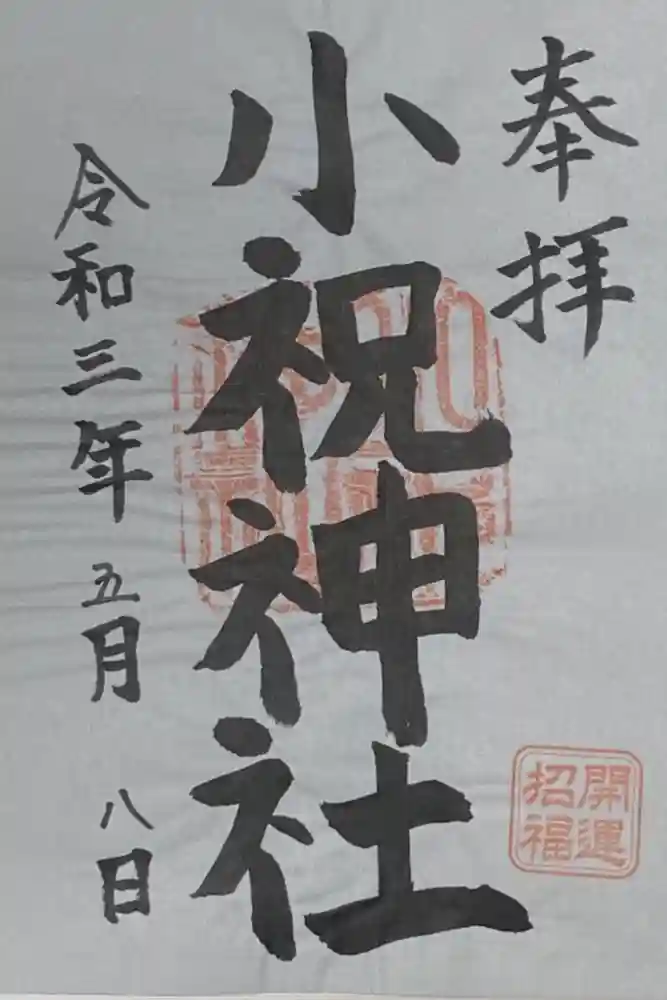 奉拝
小祝神社
開運
招福
令和三年五月八日